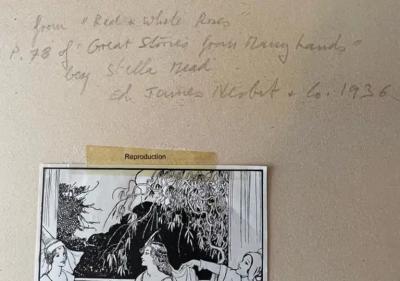 from "Red & White Roses"
P. 78 of "Great Stories from Many Lands"
by Stella Mead
Ed. James Nisbet & Co. 1936
Reproduction